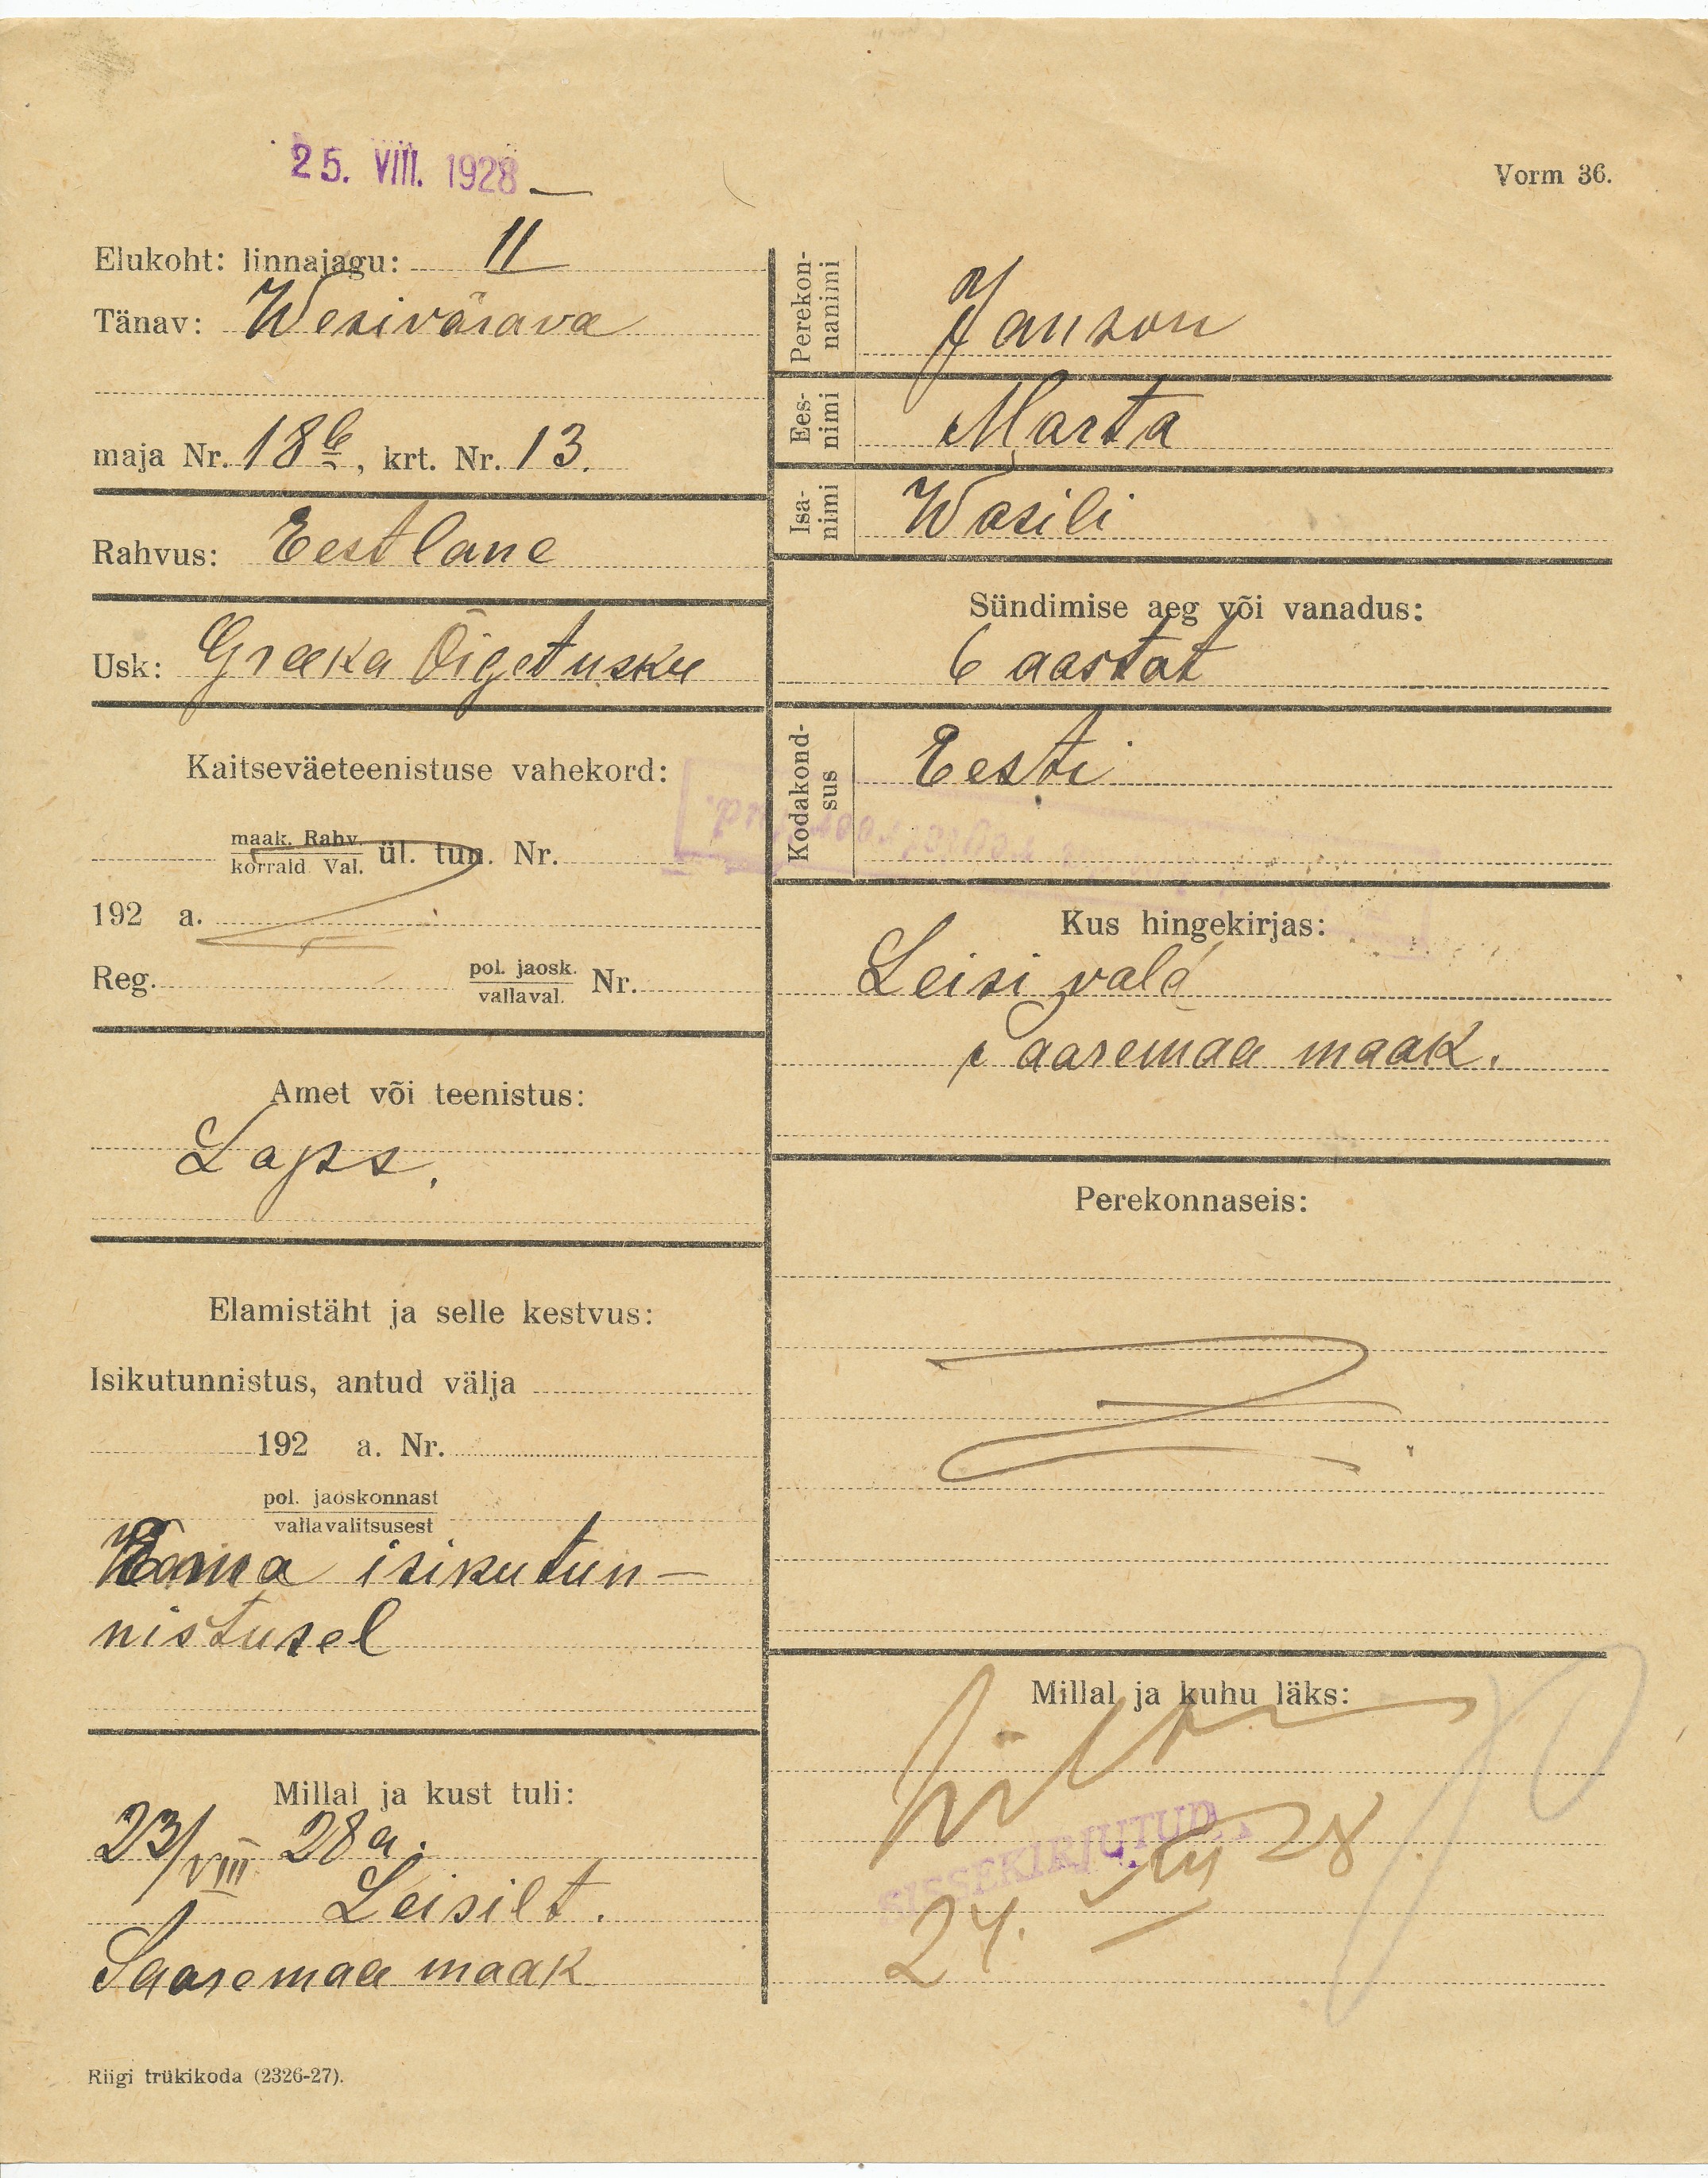 25. VIII. 1928
Vorm 36.
Elukoht: linnajagu: II
Tänav: Wesivärava
maja Nr. 18b, krt. Nr. 13.
Rahvus: Eestlane
Usk: Greeka Õigetusku
Kaitseväeteenistuse vahekord:
maak. Rahv.
korrald. Val. ül. tun. Nr.
192 a.
Reg. pol. jaosk.
vallaval. Nr.
Amet või teenistus:
Laps.
Elamistäht ja selle kestvus:
Isikutunnistus, antud välja
192 a. Nr.
pol. jaoskonnast
vallavalitsusest
Ema isikutun-
nistusel
Millal ja kust tuli:
23/VIII 28 a.
Leisilt.
Saaremaa maak
Riigi trükikoda (2326-27).
Perekon-
nanimi Janson
Ees-
nimi Marta
Isa-
nimi Wasili
Sündimise aeg või vanadus:
6 aastat
Kodakond-
sus Eesti
Kus hingekirjas:
Leisi vald
Saaremaa maak.
Perekonnaseis:
Millal ja kuhu läks:
SISSEKIRJUTUD.
24. 28